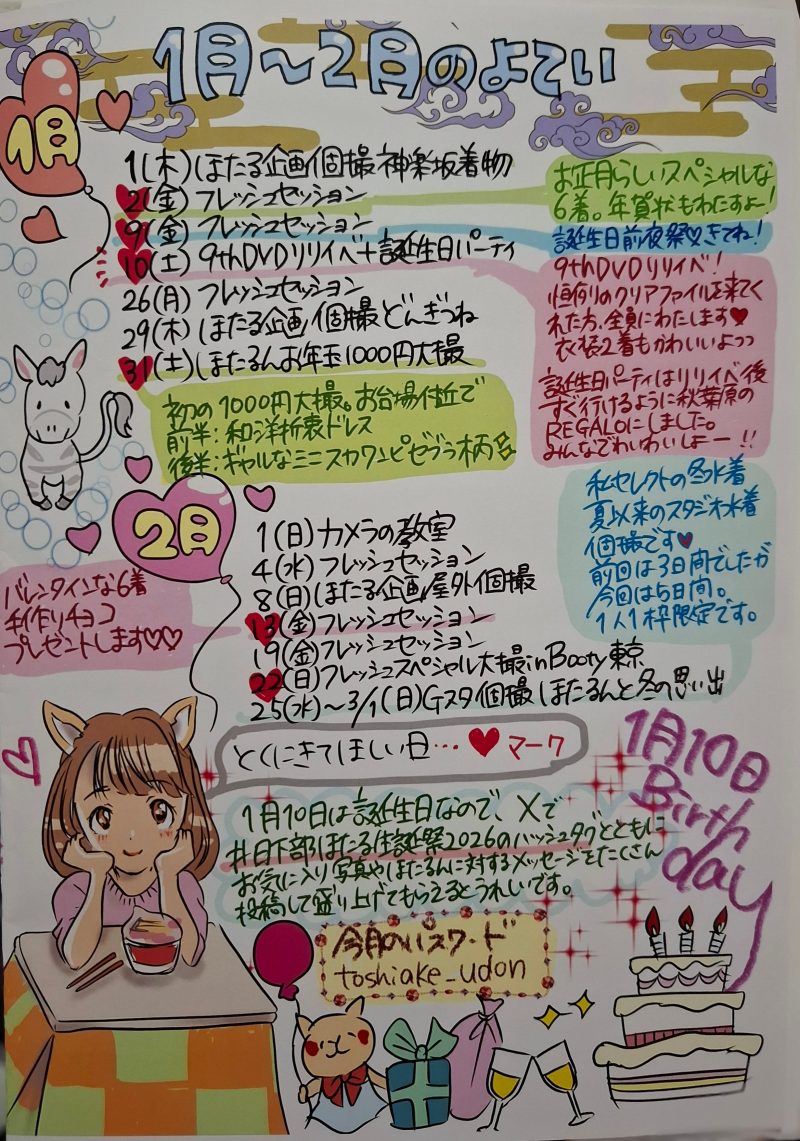 1月～2月のよてい
1月
1(木)ほたる企画個撮神楽坂着物
2(金)フレッシュセッション
9(金)フレッシュセッション
10(土)9thDVDリリイベ+誕生日パーティ
26(月)フレッシュセッション
29(木)ほたる企画個撮どんぎつね
31(土)ほたるんお年玉1000円大撮
お正月らしいスペシャルな
6着。年賀状もわたすよー!
誕生日前夜祭♡きてね!
9thDVDリリイベ!
恒例りのクリアファイルを来てく
れた方、全員にわたします♥
衣装2着もかわいいよっっ
誕生日パーティはリリイベ後
すぐ行けるように秋葉原の
REGALOにしました。
みんなでわいわいしよー!!
初の1000円大撮。お台場付近で
前半:和洋折衷ドレス
後半:ギャルなミニスカワンピゼブラ柄
2月
1(日)カメラの教室
4(水)フレッシュセッション
8(日)ほたる企画屋外個撮
13(金)フレッシュセッション
19(金)フレッシュセッション
22(日)フレッシュスペシャル大撮inBooty東京
25(水)～3/1(日)Gスタ個撮ほたるんと冬の思い出
私セレクトの冬水着
夏以来のスタジオ水着
個撮です♥
前回は3日間でしたが
今回は5日間。
1人1枠限定です。
バレンタインな6着
手作りチョコ
プレゼントします♡♡
とくにきてほしい日…♥マーク
1月10日は誕生日なので、Xで
#日下部ほたる生誕祭2026のハッシュタグとともに
お気に入り写真やほたるんに対するメッセージをたくさん
投稿して盛り上げてもらえるとうれしいです。
1月10日
Birth
day
今月のパスワード
toshiake_udon